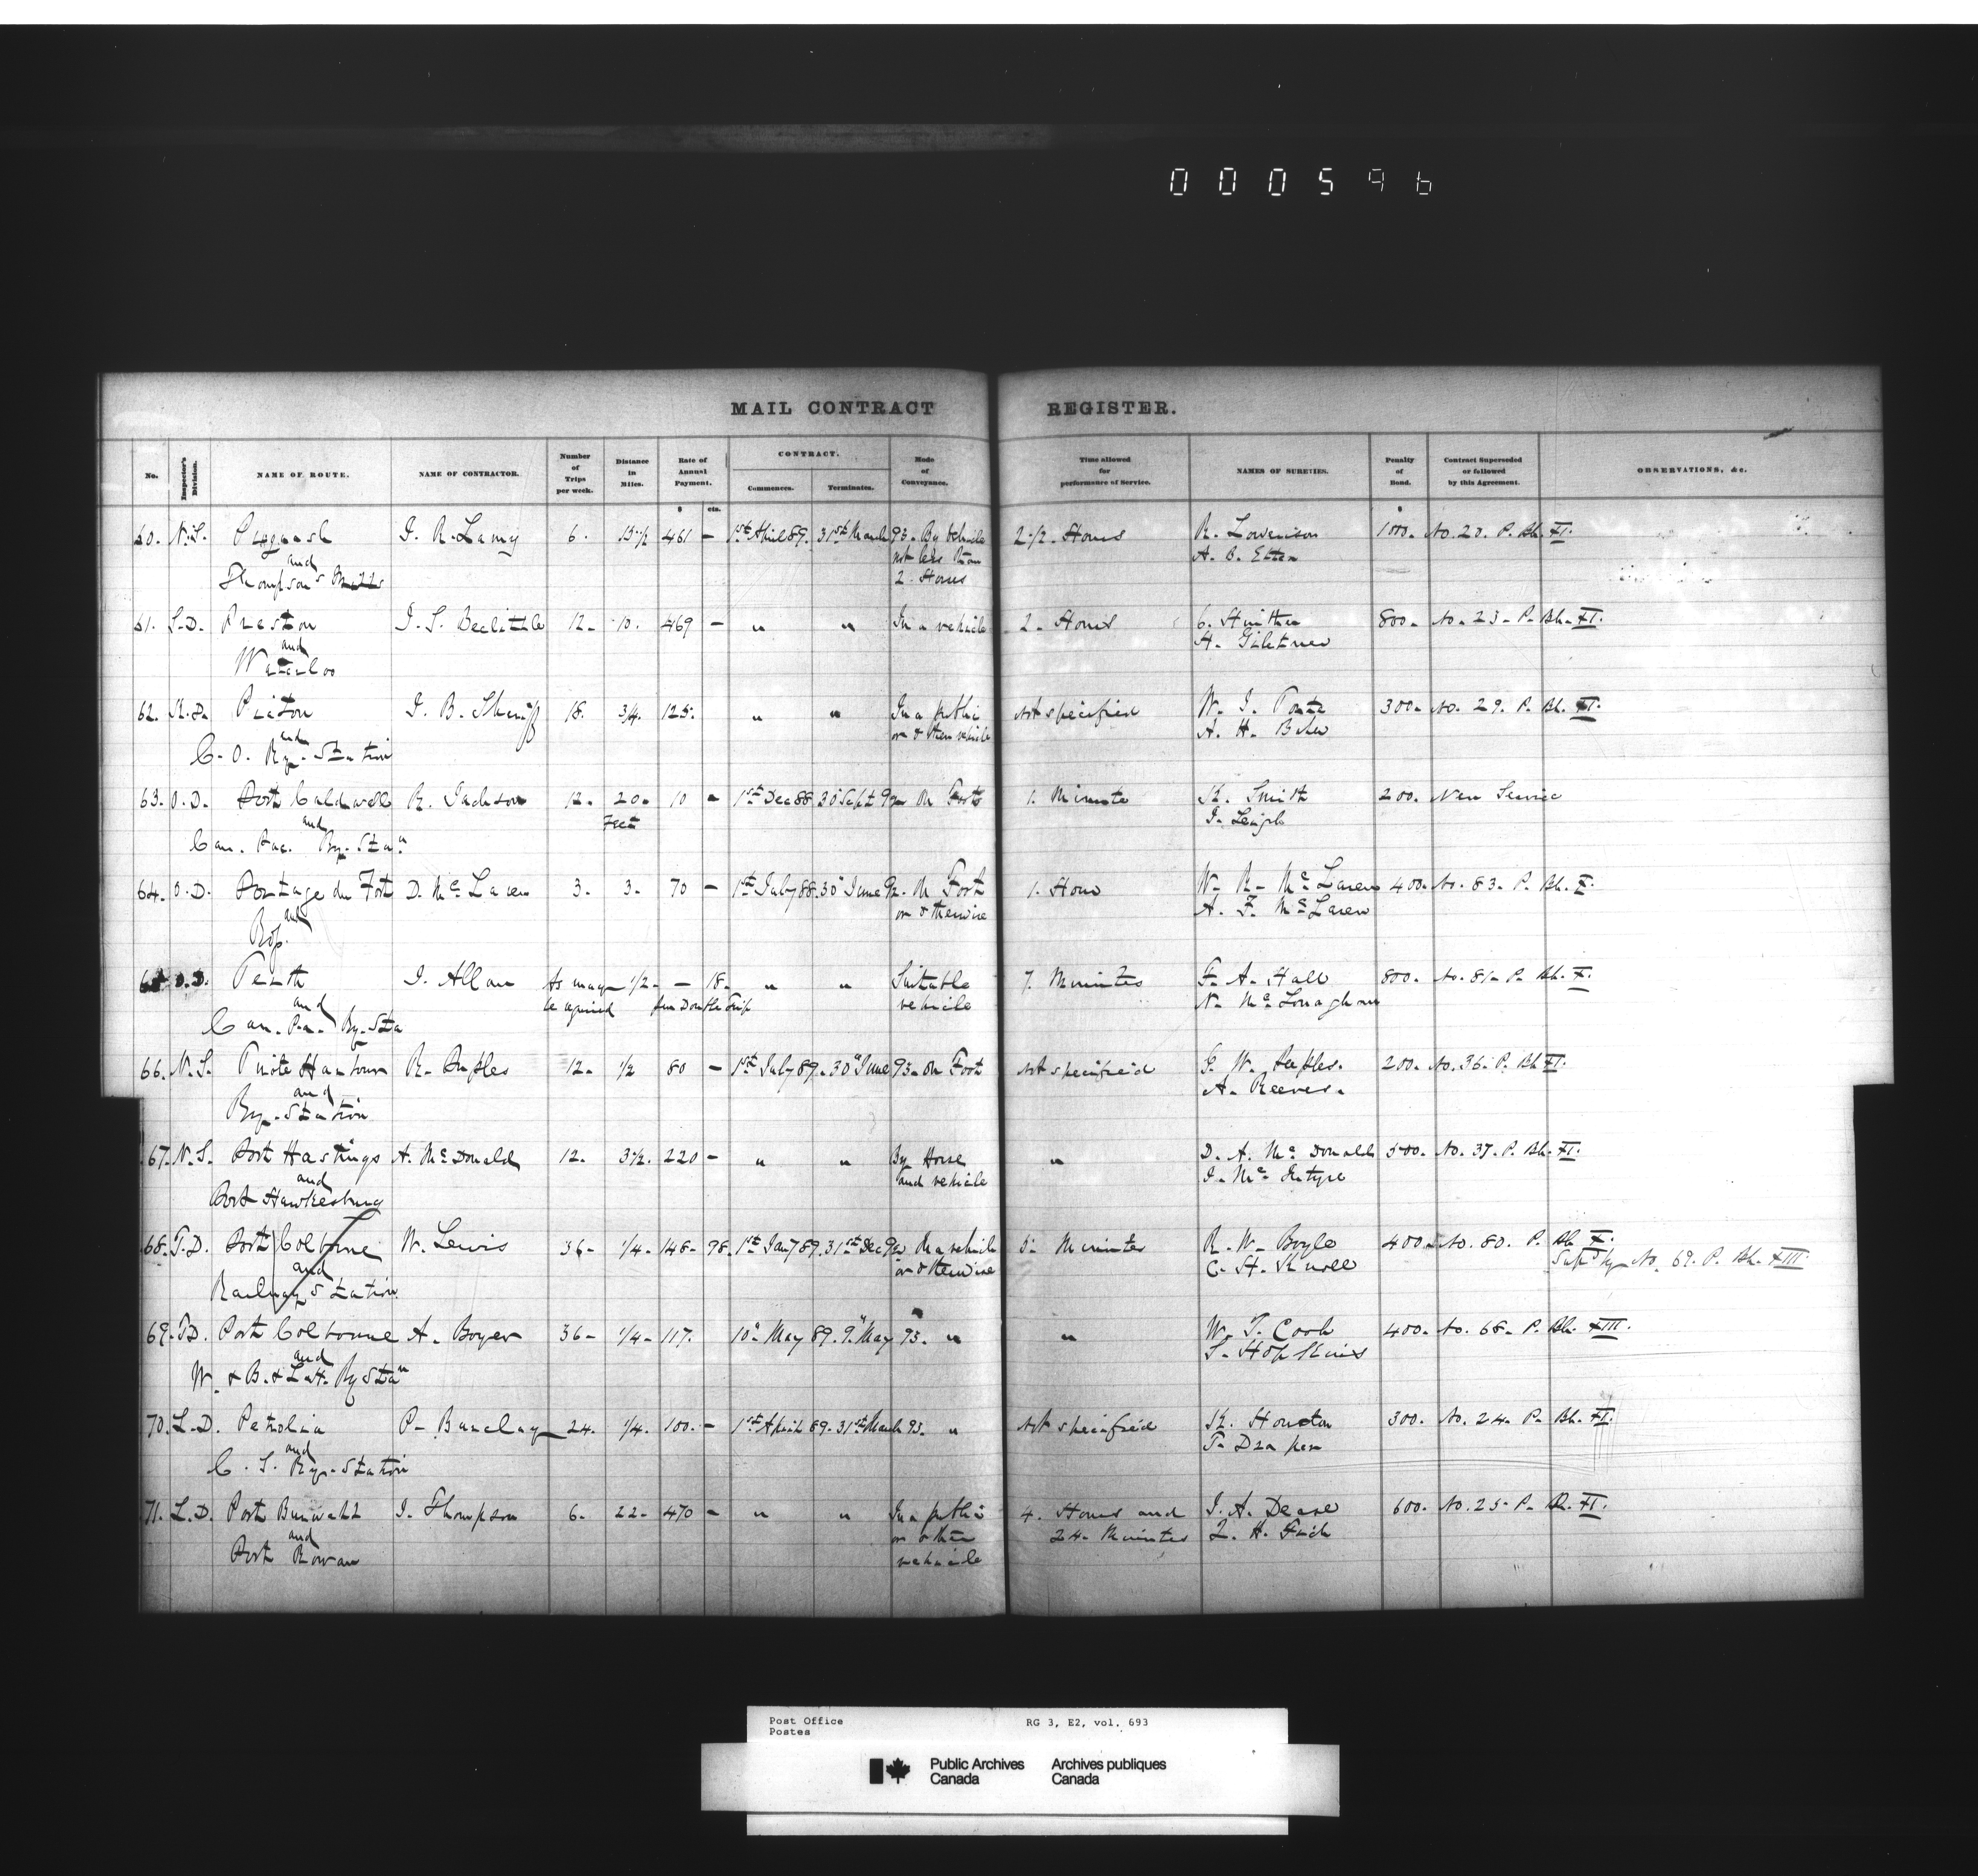 000596
MAIL CONTRACT REGISTER.
No. Inspector's Division. NAME OF ROUTE. NAME OF CONTRACTOR. Number of Trips per week. Distance in Miles. Rate of Annual Payment. CONTRACT. Commences. Terminates. Mode of Conveyance. Time allowed for performance of Service. NAMES OF SURETIES. Penalty of Bond. Contract Superseded or followed by this Agreement. OBSERVATIONS, &c.
$ cts. $
60. N.S. Pugwash I. R. Lamy 6. 13 1/2 461 — 1st April 89. 31st March 93. By Vehicle 2 1/2. Hours R. Lowerison 100. No. 20. P. Bk. XI.
and not less than A. B. Etter
Thompson's Mills 2. Hours
61. S.D. Preston I. S. Beclittle 12. 10. 469 — " " In a vehicle 2. Hours 800. No. 23. P. Bk. XI.
and
Waterloo
62. K.D. Picton I. B. Sheriff 18. 3/4. 125. " " In a public Not specified W. I. 300. No. 29. P. Bk. XI.
and or other vehicle A. H.
C. O. Ry. Station
63. O.D. Port Caldwell R. Jackson 12. 20. 10 — 1st Dec 88 30 Sept 92 On Foot 1. Minute K. Smith 200. New Service
and Feet I. Leigh
Can. Pac. Ry. Stan
64. O.D. Portage du Fort D. McLaren 3. 3. 70 — 1st July 88. 30" June 92. On Foot 1. Hour W. R. McLaren 400. No. 83. P. Bk. X.
and or otherwise A. F. McLaren
65 O.D. Perth I. Allan As may 1/2. — 18. " " Suitable 7. Minutes F. A. Hall 800. No. 81. P. Bk. X.
and be required per Double Trip vehicle N. McLonaghan
Can. Pa. Ry. Sta
66. N.S. Harbour R. Peeples 12. 1/2 80 — 1st July 89. 30" June 93. On Foot Not specified W. Peeples. 200. No. 36. P. Bk XI.
and A. Reeves.
Ry. Station
67. N.S. Port Hastings A. McDonald 12. 3 1/2. 220 — " " By Horse " D. A. McDonald 500. No. 37. P. Bk. XI.
and and vehicle I. McIntyre
Port Hawkesbury
68. T.D. Port Colborne W. Lewis 36. 1/4. 148. 98. 1st Jany 89. 31st Dec 92 In a vehicle 5. Minutes R. W. Boyle 400. No. 80. P. Bk X.
and or otherwise C. H. Knoll Supd by No. 69. P. Bk. XIII.
Railway Station
69. T.D. Port Colborne A. Boyer 36. 1/4. 117. 10" May 89. 9" May 93. " " W. T. Cook 400. No. 68. P. Bk. XIII.
and S. Hopkins
W. & B. & L.H. Ry Stan
70. L.D. Petrolia P. Barclay 24. 1/4. 100. — 1st April 89. 31st March 93. " Not specified K. Houston 300. No. 24. P. Bk. XI.
and T. Draper
C. S. Ry. Station
71. L.D. Port Burwell I. Thompson 6. 22. 470 — " " In a public 4. Hours and I. A. Dease 600. No. 25. P. Bk. XI.
and or other 24. Minutes
Port Rowan vehicle
Post Office RG 3, E2, vol. 693
Postes
Public Archives Archives publiques
Canada Canada